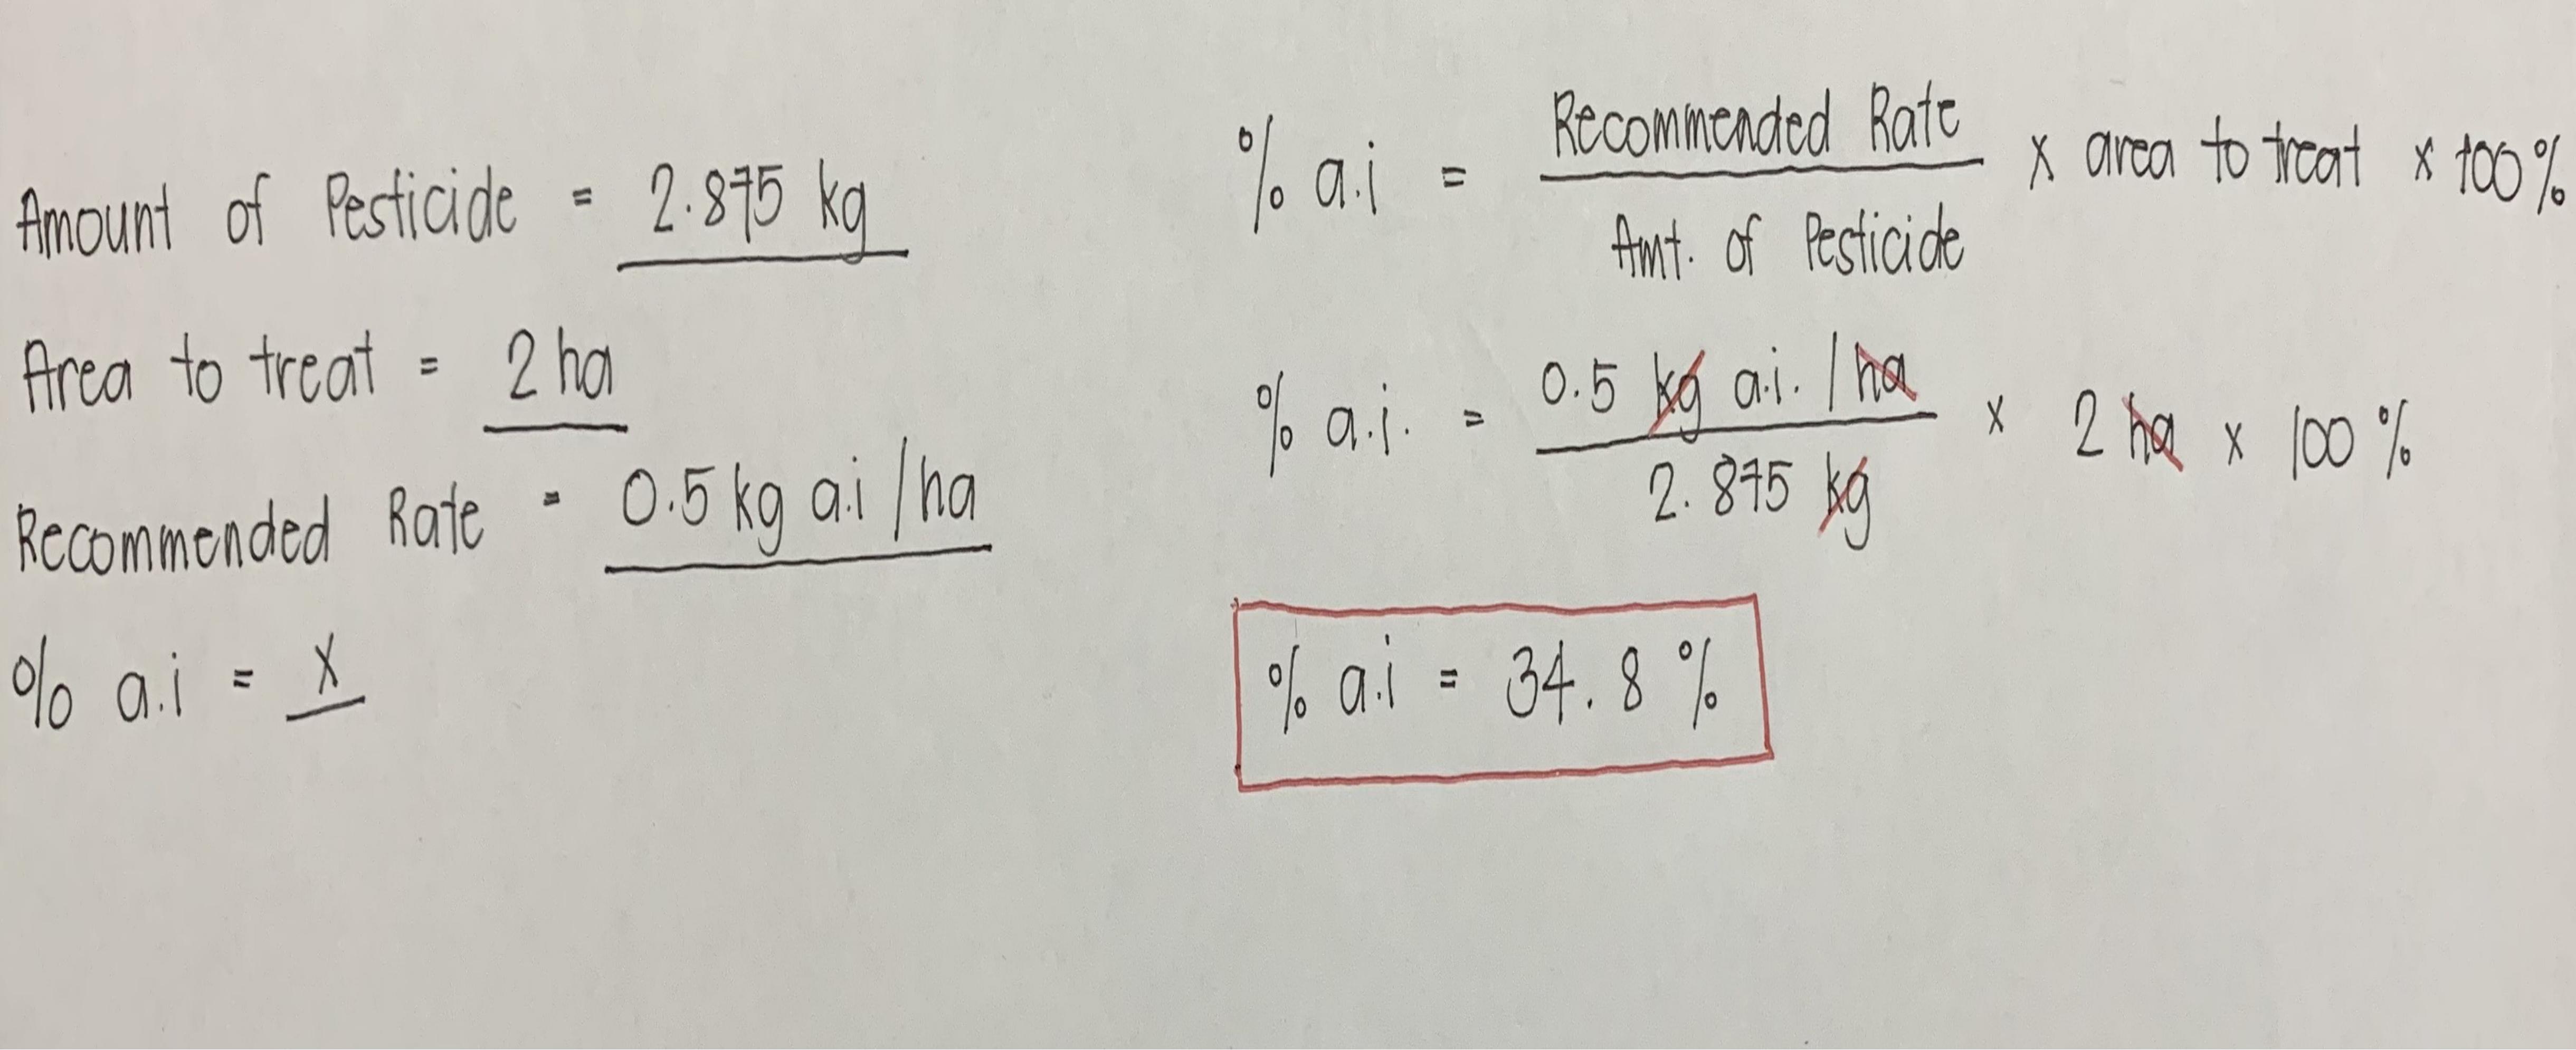 Amount of Pesticide = 2.875 kg
Area to treat = 2 ha
Recommended Rate = 0.5 kg a.i / ha
% a.i = x
% a.i = Recommended Rate / Amt. of Pesticide x area to treat x 100%
% a.i. = 0.5 kg a.i. / ha / 2.875 kg x 2 ha x 100 %
% a.i = 34.8 %